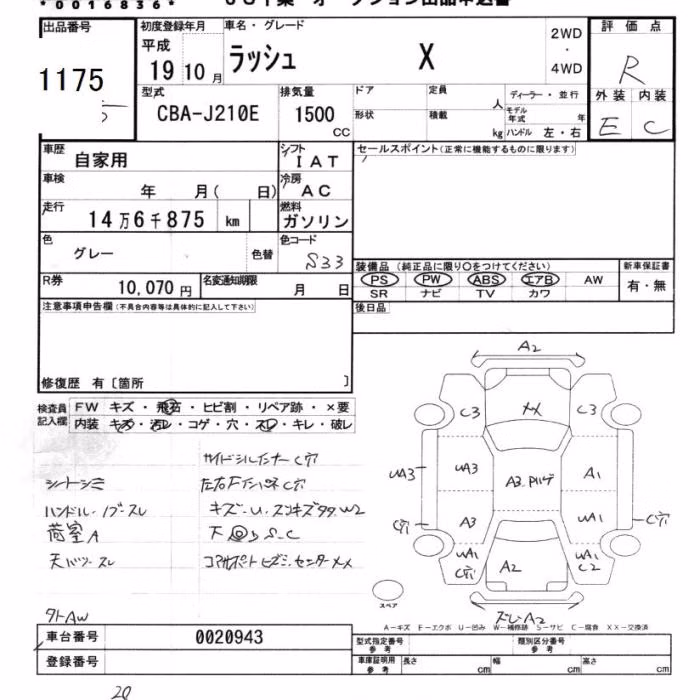 *0016836*
出品番号 初度登録年月 車名・グレード 2WD ・ 4WD 評価点
1175 平成 19 10月 ラッシュ X R
型式 CBA-J210E 排気量 1500 CC
ドア 定員 人 ディーラー・並行
形状 積載 kg モデル年式 年 ハンドル 左・右
外装 内装
E C
車歴 自家用 シフト IAT セールスポイント(正常に機能するものに限ります)
車検 年 月( 日) 冷房 AC
走行 14万6千875 km 燃料 ガソリン
色 グレー 色替 色コード S33
装備品 (純正品に限り○をつけてください) 新車保証書
PS PW ABS エアB AW 有・無
SR ナビ TV カワ
R券 10,070円 名変通知期限 月 日
後日品
注意事項申告欄(不具合内容等は具体的に記入して下さい)
修復歴 有〔箇所 〕
検査員記入欄 FW キズ・飛石・ヒビ割・リペア跡・×要
内装 キズ・汚レ・コゲ・穴・スレ・キレ・破レ
サイドシルインナーC穴
シートシミ 左右Fインパネ C穴
ハンドル・ノブスレ キズ・U・スンキズタタW2
荷室A 下回りS・C
天バリスレ コアサポートヒズミ・センターXX
外AW
A2
C3 XX C3
UA3 UA3 A3 A1
C穴 A3 UA1 C穴
UA1 C穴 A2 UA1 C2
スペア
ズレA2
A-キズ E-エクボ U-凹み W-補修跡 S-サビ C-腐食 XX-交換済
車台番号 0020943 型式指定番号 参考 類別区分番号 参考
登録番号 車庫証明用 参考 長さ cm 幅 cm 高さ cm